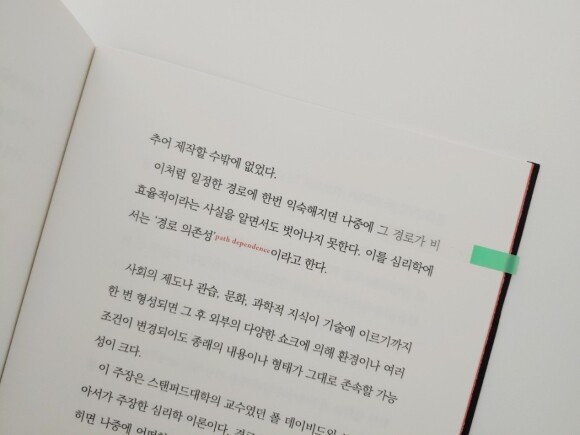 추어 제작할 수밖에 없었다.
이처럼 일정한 경로에 한번 익숙해지면 나중에 그 경로가 비
효율적이라는 사실을 알면서도 벗어나지 못한다. 이를 심리학에
서는 '경로 의존성'path dependence이라고 한다.
사회의 제도나 관습, 문화, 과학적 지식이 기술에 이르기까지
한 번 형성되면 그 후 외부의 다양한 쇼크에 의해 환경이나 여러
조건이 변경되어도 종래의 내용이나 형태가 그대로 존속할 가능
성이 크다.
이 주장은 스탠퍼드대학의 교수였던 폴 데이비드와
아서가 주장한 심리학 이론이다.
히면 나중에